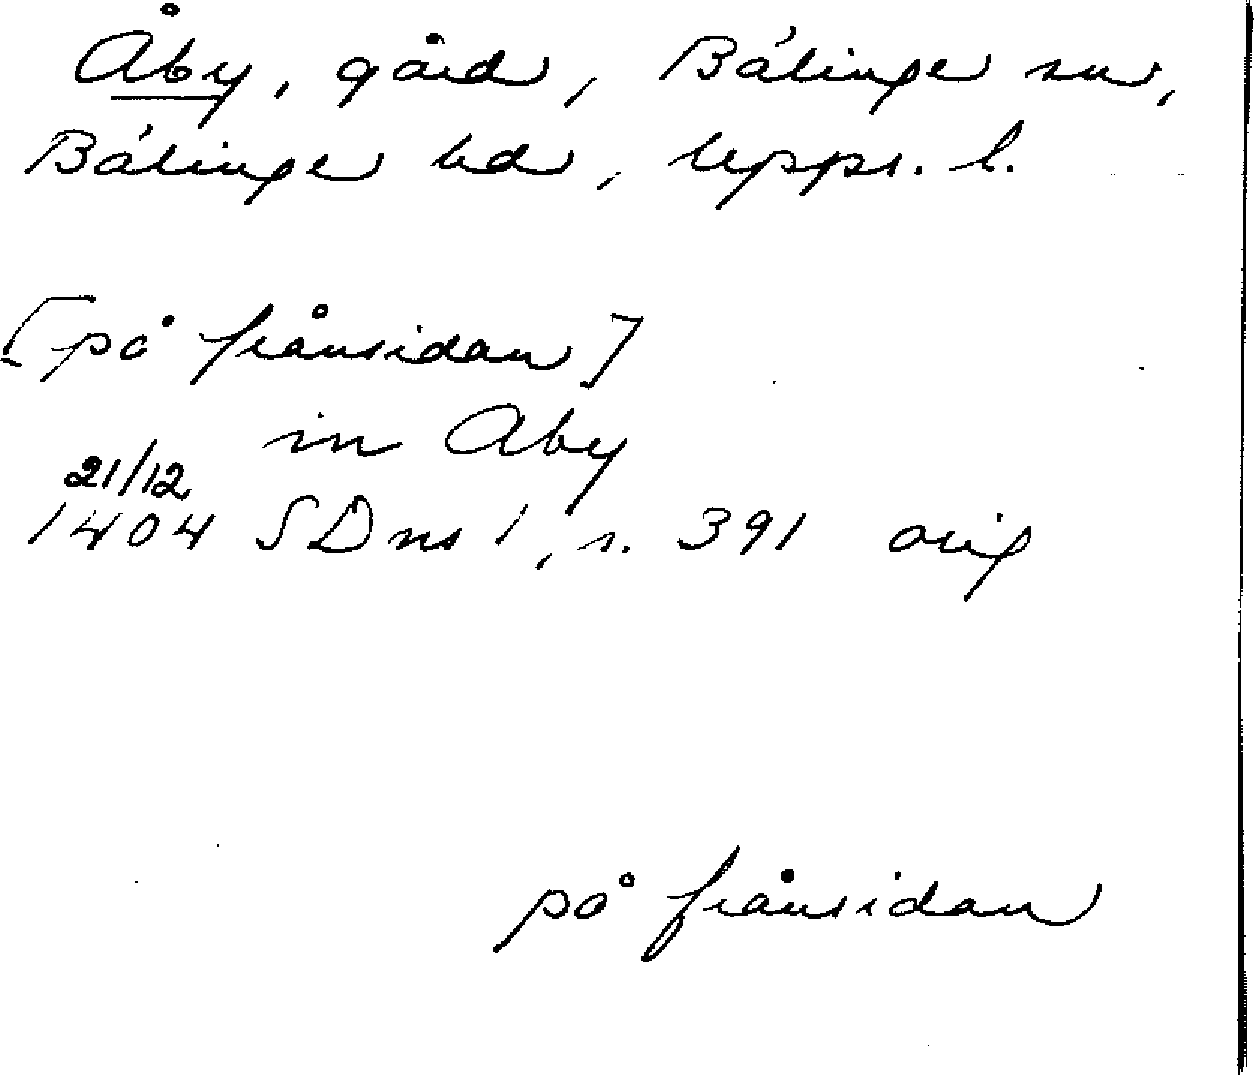 Åby, gård, Bälinge sn,
Bälinge hd, Upps. l.
[på frånsidan]
in Aby
21/12
1404 SDns 1, s. 391 orig
på frånsidan